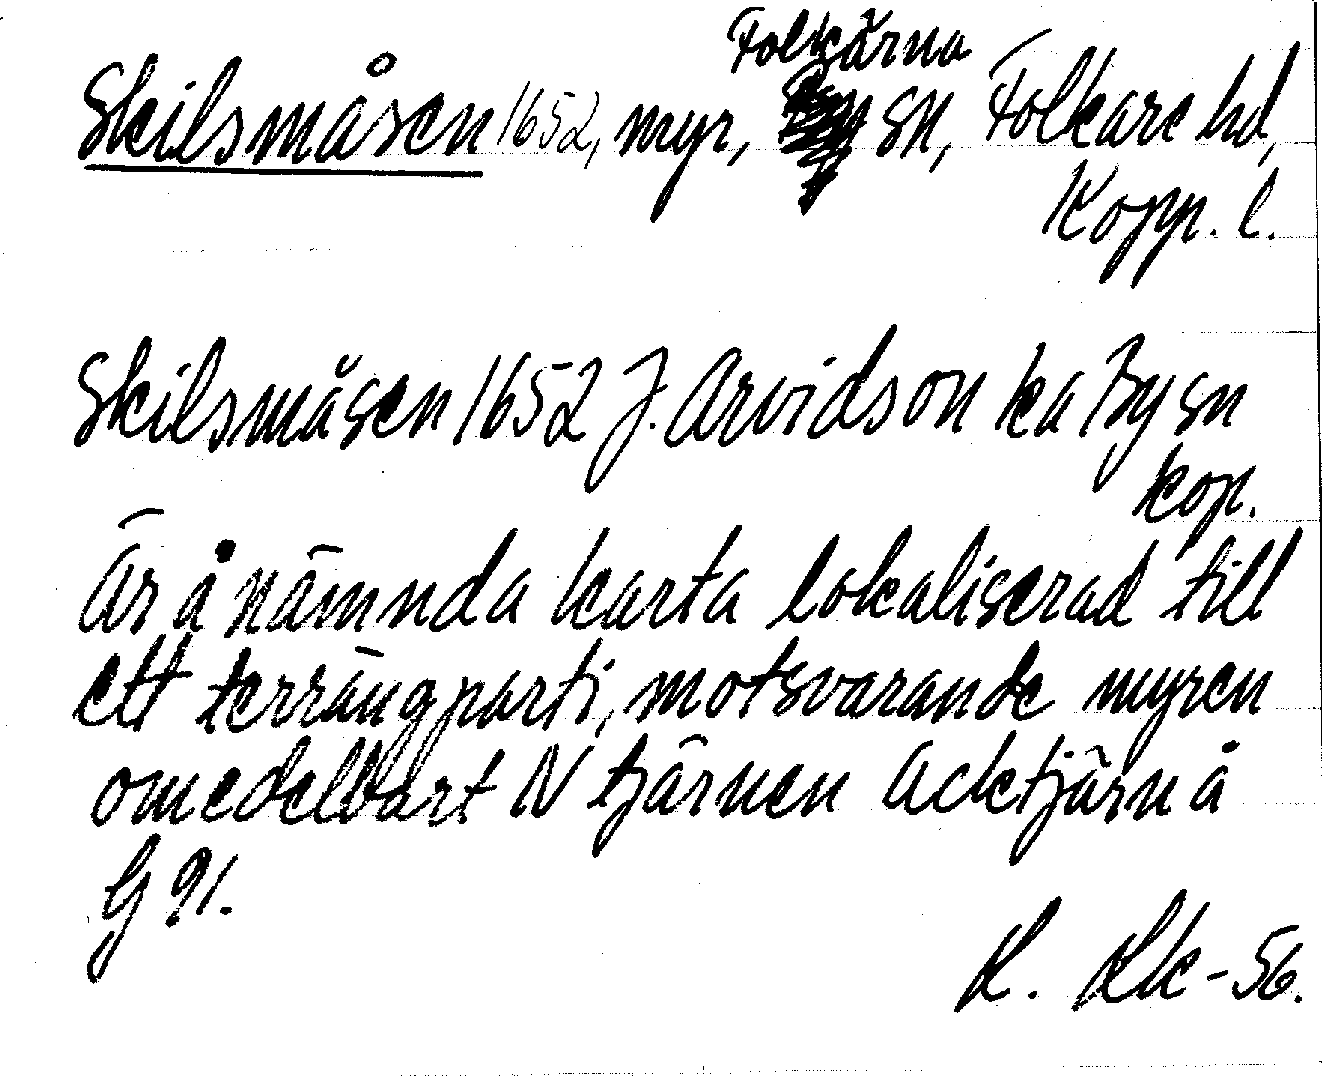 Folkärna
Skilsmåsen 1652, myr, sn, Folkare hd,
Kopp. l.
Skilsmåsen 1652 J. Arvidson ka By sn
kop.
Är å nämnda karta lokaliserad till
ett terrängparti, motsvarande myren
omedelbart N tjärnen Acktjärn å
G 91.
56.